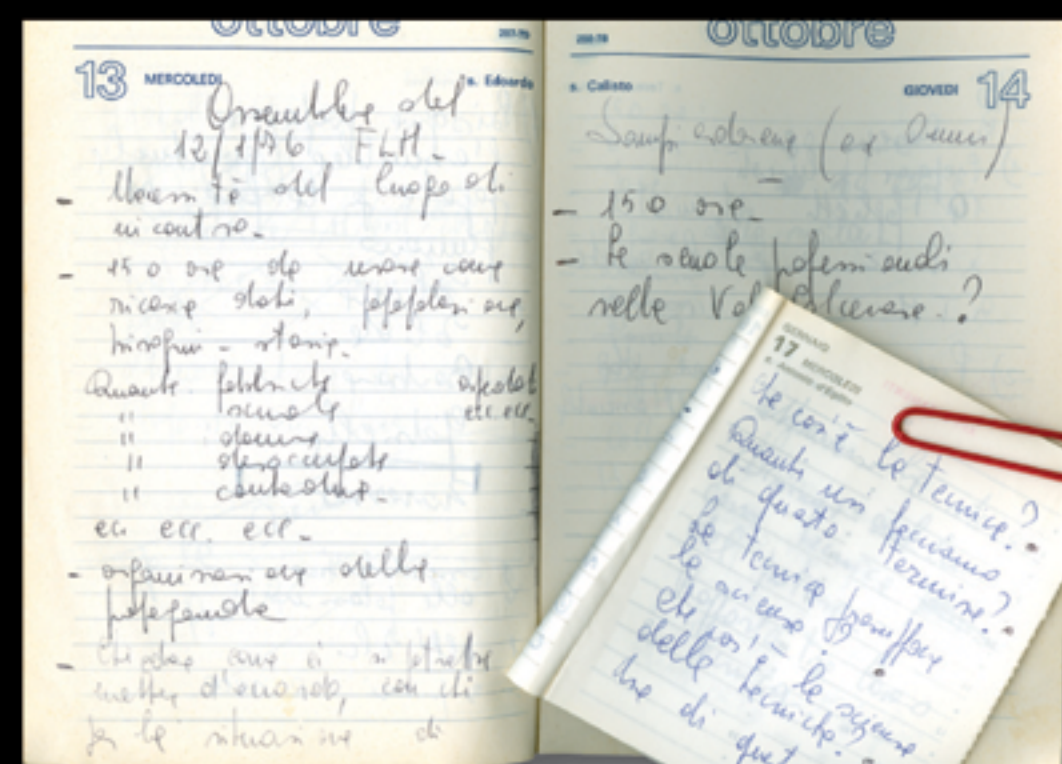 ottobre
287-79
13 MERCOLEDI s. Edoardo
Assemblea del
12/1/76 FLM -
- Necessità del luogo di
incontro -
- 150 ore da usare come
ricerca dati, popolazione,
bisogni - storia.
Quante fabbriche ospedali
" scuole ecc. ecc.
" donne
" disoccupate
" contadine -
ecc. ecc. ecc. -
- organizzazione della
propaganda
- Chiedere come ci si potrebbe
mettere d'accordo, con chi
per la situazione di
ottobre
288-78
s. Calisto GIOVEDI 14
Sampierdarena (ex
- 150 ore -
- Le scuole professionali
nella Val Polcevera - ?
GENNAIO
17 MERCOLEDI
s. Antonio d'Egitto
Che cos'è la tecnica?
Quanti usi facciamo
di questo termine?
La tecnica
la scienza?
Che cos'è la scienza
della tecnica?
di